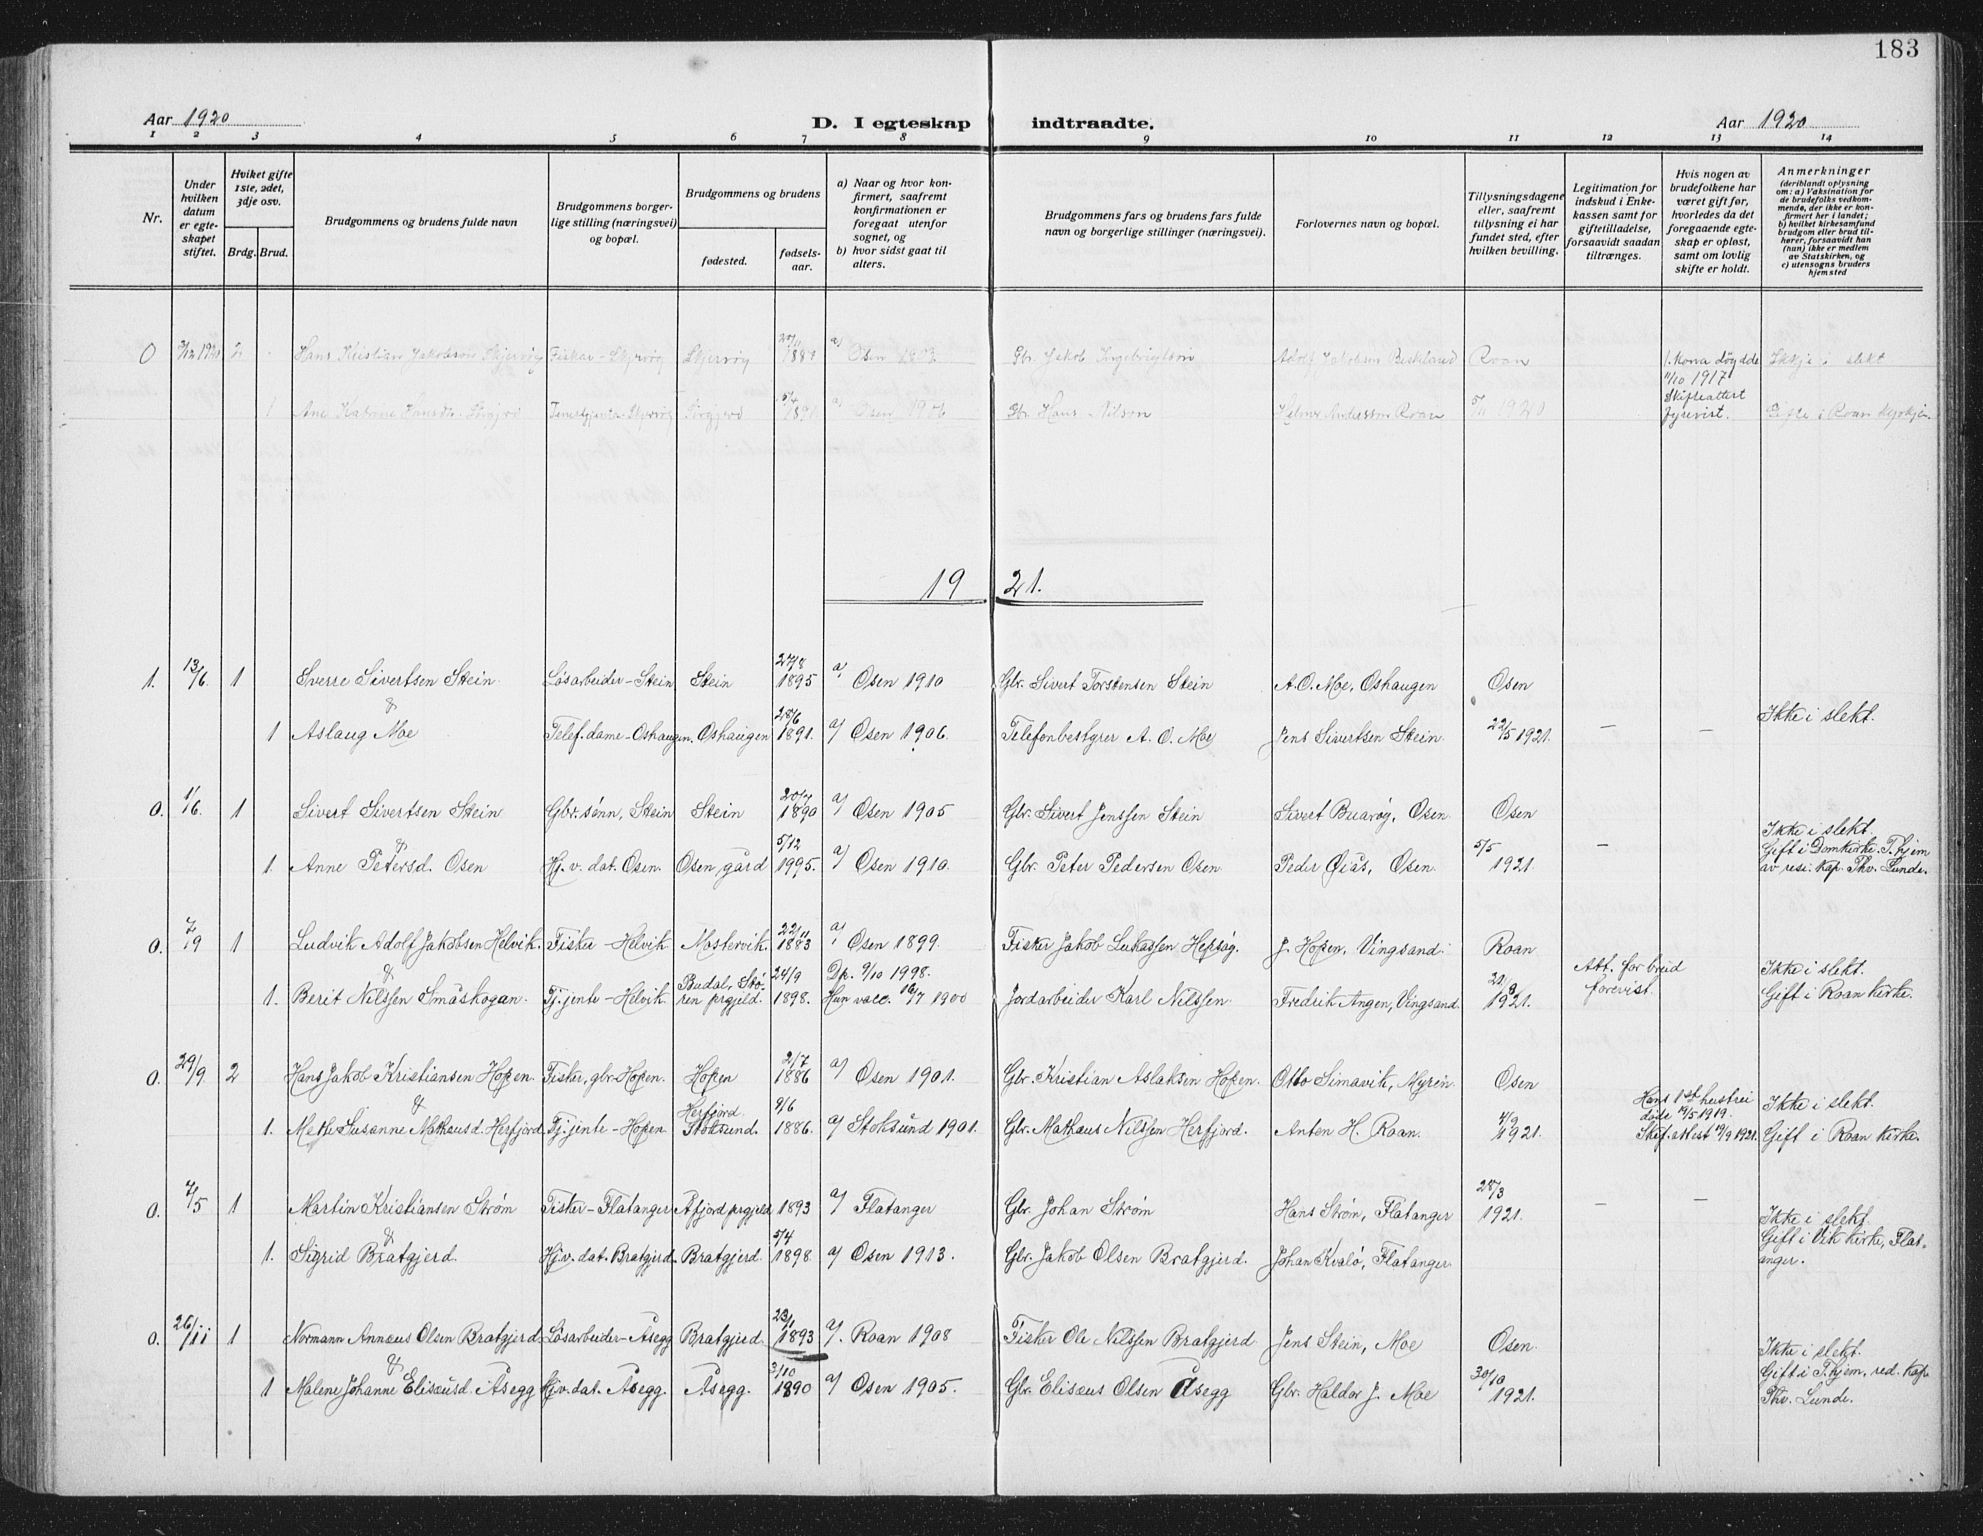 183
Aar 1920 D. I egteskap indtraadte. Aar 1920
1 2 3 4 5 6 7 8 9 10 11 12 13 14
Nr.
Under hvilken datum er egteskapet stiftet.
Hviket gifte 1ste, 2det, 3dje osv.
Brdg. Brud.
Brudgommens og brudens fulde navn
Brudgommens borgerlige stilling (næringsvei) og bopæl.
Brudgommens og brudens
fødested.
fødselsaar.
a) Naar og hvor konfirmert, saafremt konfirmationen er foregaat utenfor sognet, og
b) hvor sidst gaat til alters.
Brudgommens fars og brudens fars fulde navn og borgerlige stillinger (næringsvei).
Forlovernes navn og bopæl.
Tillysningsdagene eller, saafremt tillysning ei har fundet sted, efter hvilken bevilling.
Legitimation for indskud i Enkekassen samt for giftetilladelse, forsaavidt saadan tiltrænges.
Hvis nogen av brudefolkene har været gift før, hvorledes da det foregaaende egteskap er opløst, samt om lovlig skifte er holdt.
Anmerkninger
(deriblandt oplysning om: a) Vaksination for de brudefolks vedkommende, der ikke er konfirmert her i landet; b) hvilket kirkesamfund brudgom eller brud tilhører, forsaavidt han (hun) ikke er medlem av Statskirken, og c) utensogns bruders hjemsted
0 2 Hans Kristian Jakobsen Skjervøy Fiskar - Skjervøy Skjervøy 1887 a) Osen Gbr. Jakob Ingebrigtson Adolf Jakobsen Roan 1. Kona døydde 11/10 1917 Ikkje i slekt
1 Ane Katrine Hansdt. Tenestjenta - Skjervøy a) Osen Gbr. Hans Nilson Helmer Anderssen Roan 5/11 1920 Skifteattest fyrevist. Gifte i Roan kyrkje.
19 21.
1. 13/6 1 Sverre Sivertsen Stein. Løsarbeider - Stein Stein 27/8 1895 a) Osen 1910 Gbr. Sivert Torstensen Stein A. O. Moe, Oshaugen Osen
&
1 Aslaug Moe Telef.dame - Oshaugen. Oshaugen 28/6 1891. a) Osen 1906. Telefonbestyrer A. O. Moe Jens Sivertsen Stein. 22/5 1921. - - Ikke i slekt.
0. 1/6 1 Sivert Sivertsen Stein Gbr. sønn, Stein Stein 20/7 1890 a) Osen 1905 Gbr. Sivert Jenssen Stein Sivert Buarøy, Osen Osen
&
1. Anne Petersd. Osen Hj. v. dat. Osen. Osen gård 5/12 1995. a) Osen 1910. Gbr. Peter Pedersen Osen Peder Øiås, Osen. 5/5 1921. - Ikke i slekt. Gift i Domkirke. T.hjem av resi. kap. Thv. Lunde.
0. 7/9 1 Ludvik Adolf Jakobsen Helvik. Fisker - Helvik Mostervik. 22/11 1883 a) Osen 1899. Fisker Jakob Lukassen Hepsøy. J. Hopen, Vingsand. Roan
&
1. Berit Nilssen Småskogan. Tj.jente - Helvik Budal, Støren prgjeld. 24/9 1898. Dp. 9/10 1998. Hun vacc. 16/7 1900 Jordarbeider Karl Nilssen. Fredrik Angen, Vingsand. 21/8 1921. Att. for brud forevist. Ikke i slekt. Gift i Roan kirke.
0. 29/9. 2 Hans Jakob Kristiansen Hopen. Fisker, gbr. Hopen. Hopen 2/7 1886 a) Osen 1901. Gbr. Kristian Aslaksen Hopen. Otto Simavik, Myren. Osen
&
1. Mette Susanne Mathæusd. Herfjord Tj.jente - Hopen Herfjord. Stoksund. 9/6 1886. a) Stoksund 1901. Gbr. Mathæus Nilssen Herfjord. Anten H. Roan. 4/9 1921. Hans 1ste hustrei døde 14/5 1919. Skif. attest 19/9 1921. Ikke i slekt. Gift i Roan kirke.
0. 7/5 1 Martin Kristiansen Strøm Fisker - Flatanger Åfjord prgjeld 1893 a) Flatanger Gbr. Johan Strøm Hans Strøm, Flatanger 28/3 1921. - -
&
1. Sigrid Bratgjerd. Hj.v. dat. Bratgjerd. Bratgjerd. 5/4 1898. a) Osen 1913. Gbr. Jakob Olsen Bratgjerd. Johan Kvalø, Flatanger. Ikke i slekt. Gift i Vik kirke, Flatanger.
0. 26/11 1 Normann Annæus Olsen Bratgjerd Løsarbeider - Åsegg Bratgjerd. 23/1 1893 a) Roan 1908 Fisker Ole Nilssen Bratgjerd Jens Stein, Moe Osen.
&
1 Malene Johanne Elisæusd. Åsegg Hj.v. dat. Åsegg. Åsegg. 3/10 1890 a) Osen 1905. Gbr. Elisæus Olsen Åsegg Gbr. Haldor J. Moe 30/10 1921. Ikke i slekt. Gift i T.hjem, red. kap. Thv. Lunde.